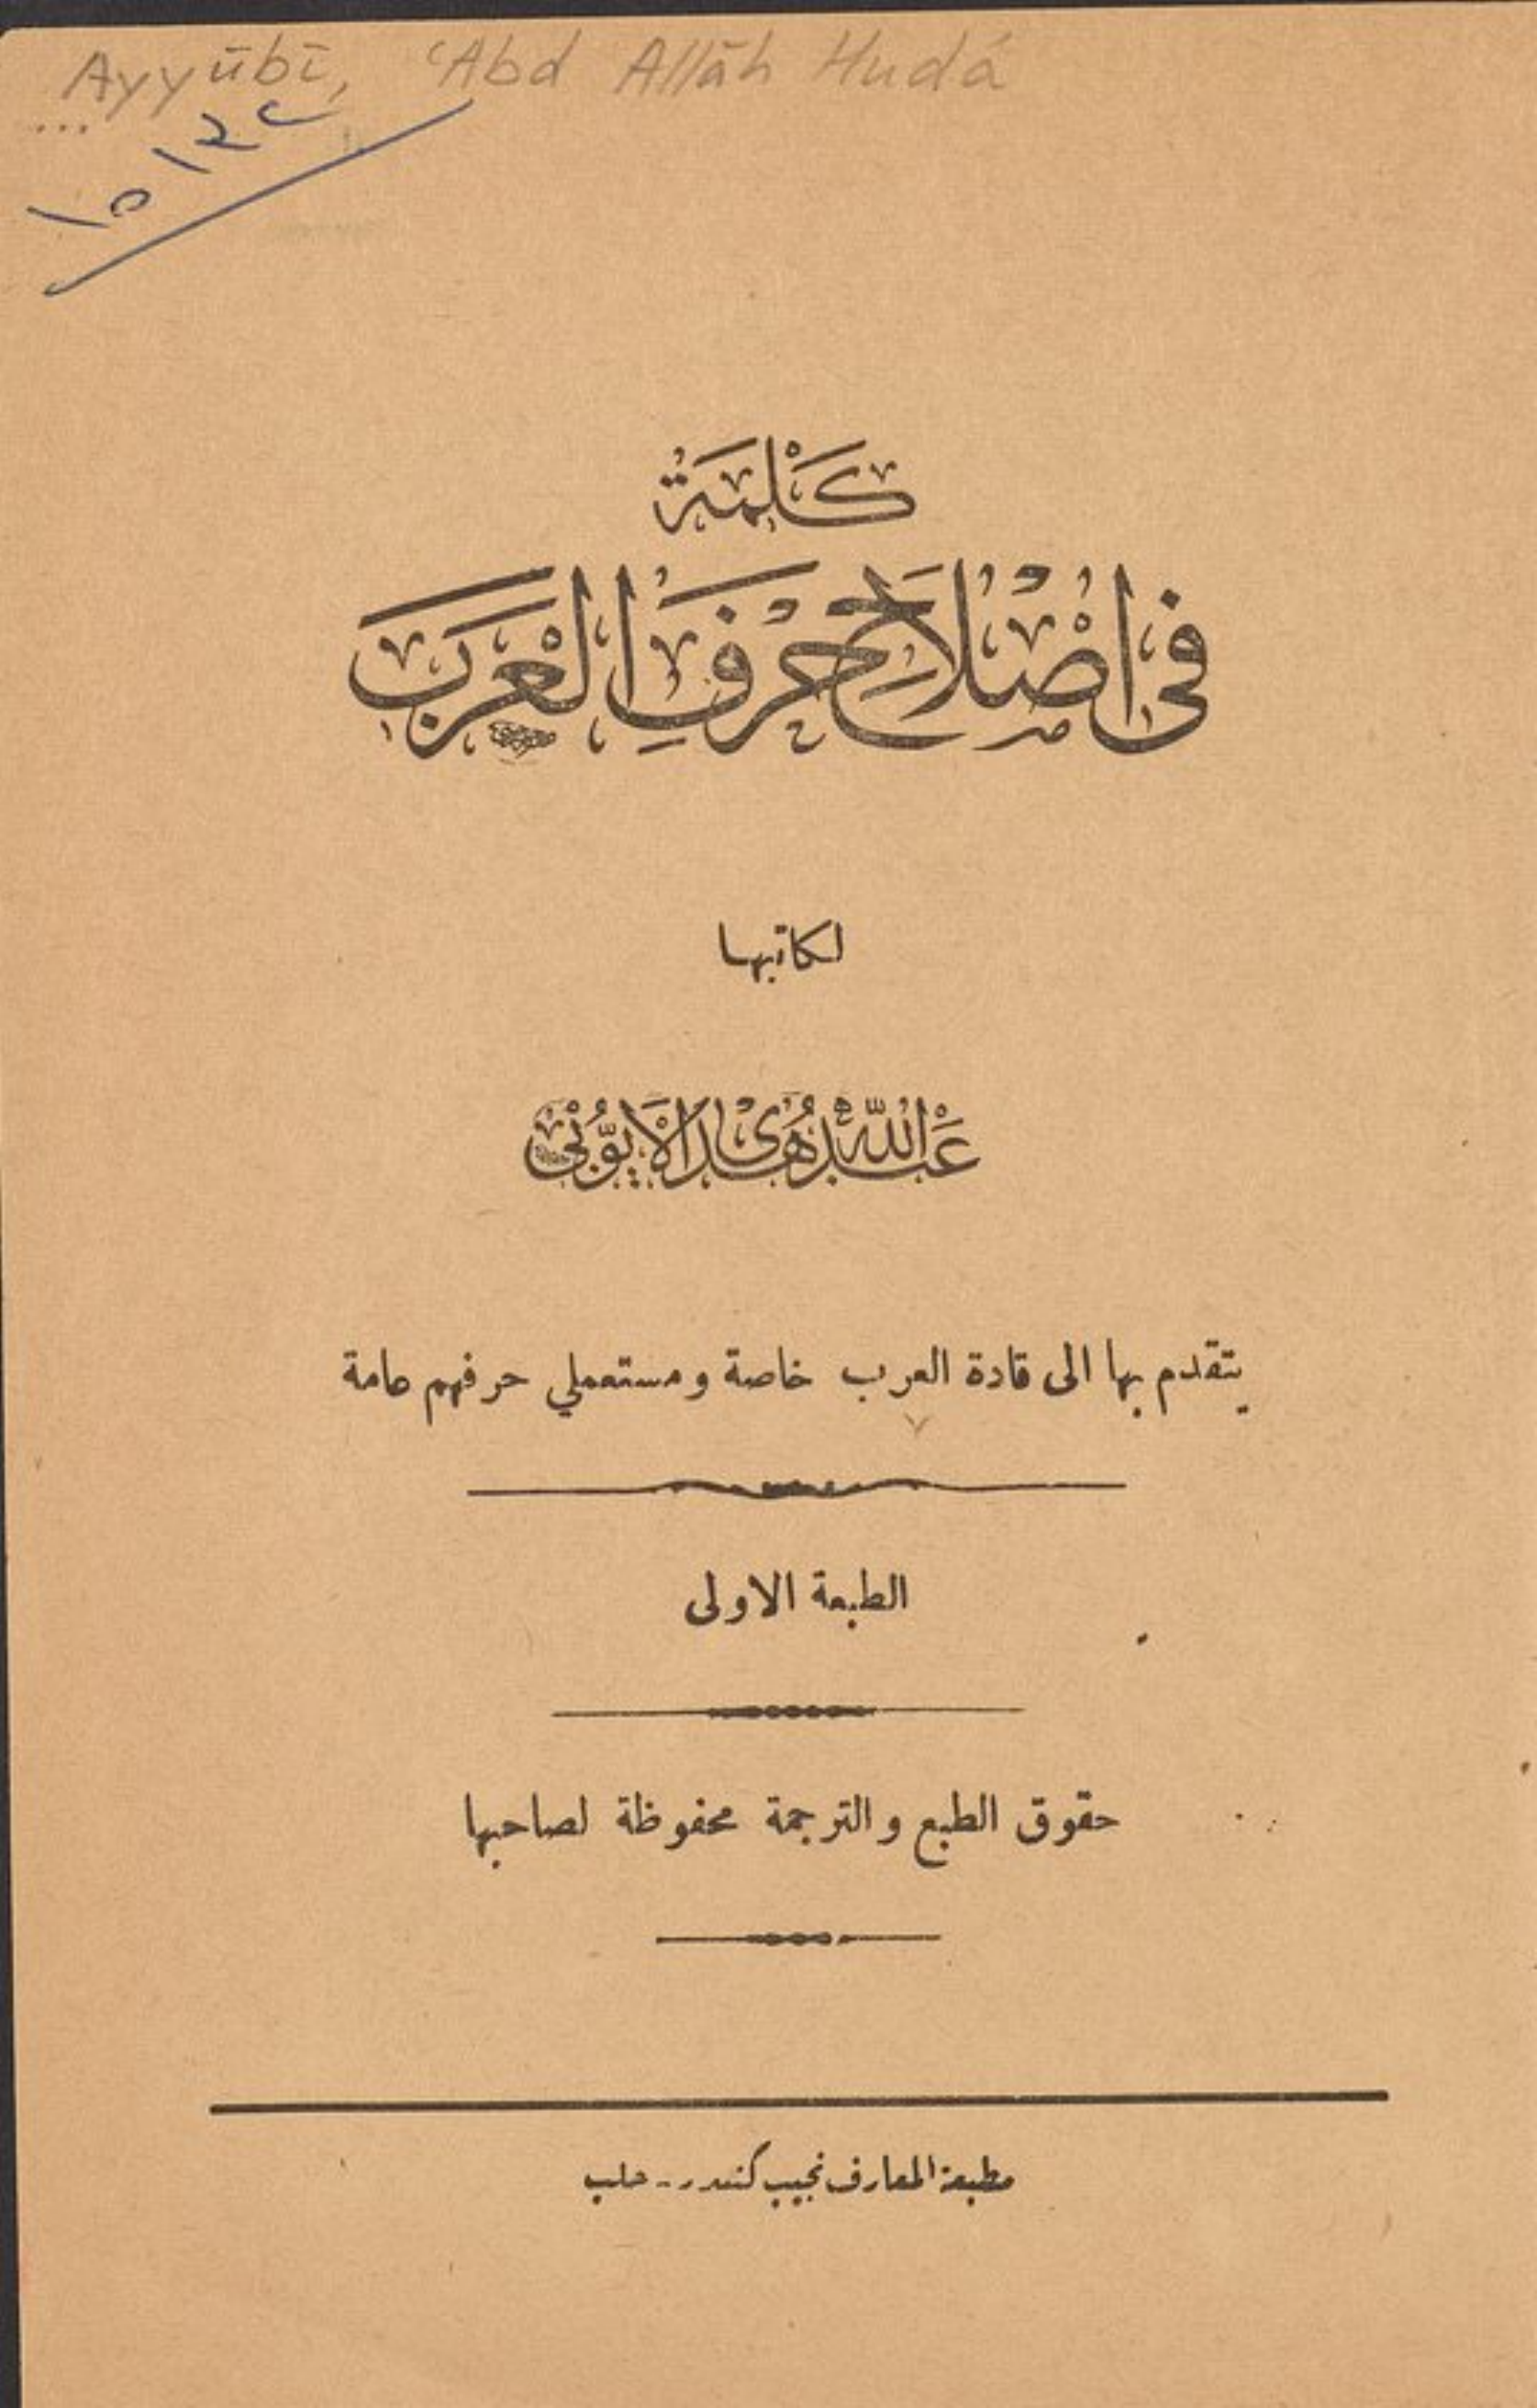 Ayyūbī, ʿAbd Allāh Hudá
...
كَلِمَةٌ
فى اصْلَاحِ حَرْفِ الْعَرَبْ
لكاتبها
عَبْدُ اللهِ هُدَى الْاَيُّوبْى
يتقدم بها الى قادة العرب خاصة ومستعملي حرفهم عامة
الطبعة الاولى
حقوق الطبع والترجمة محفوظة لصاحبها
مطبعة المعارف نجيب كنيدر - حلب